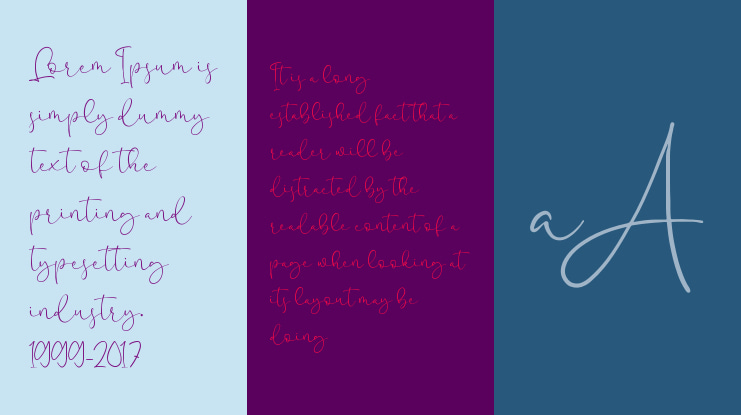 Lorem Ipsum is
simply dummy
text of the
printing and
typesetting
industry.
1999-2017
It is a long
established fact that a
reader will be
distracted by the
readable content of a
page when looking at
its layout may be
doing
aA